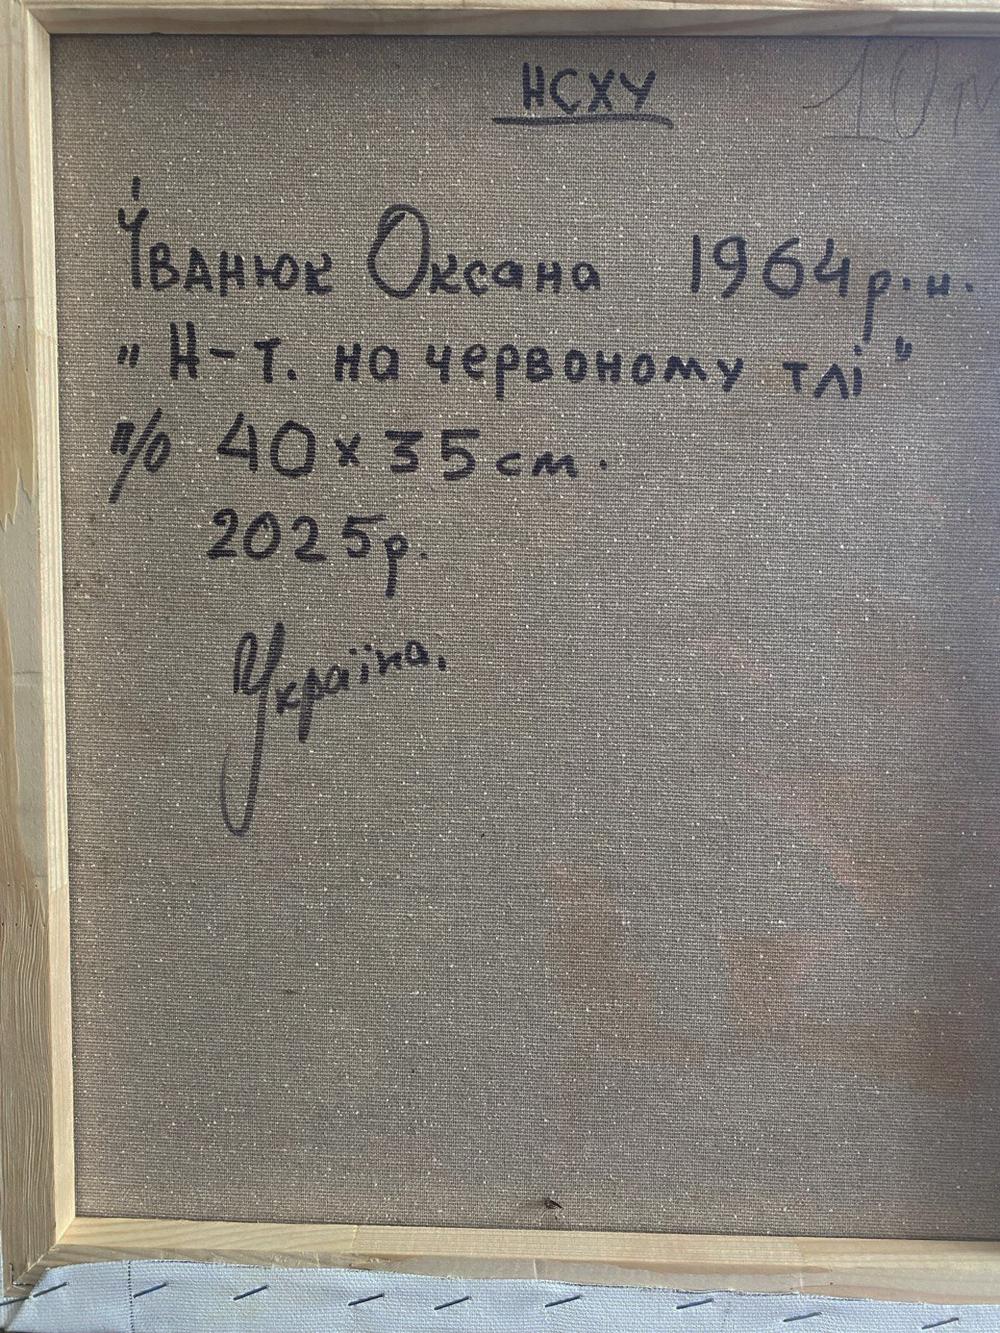 НСХУ
Іванюк Оксана 1964 р.н.
"Н-т. на червоному тлі"
п/о 40 х 35 см.
2025р.
Україна.